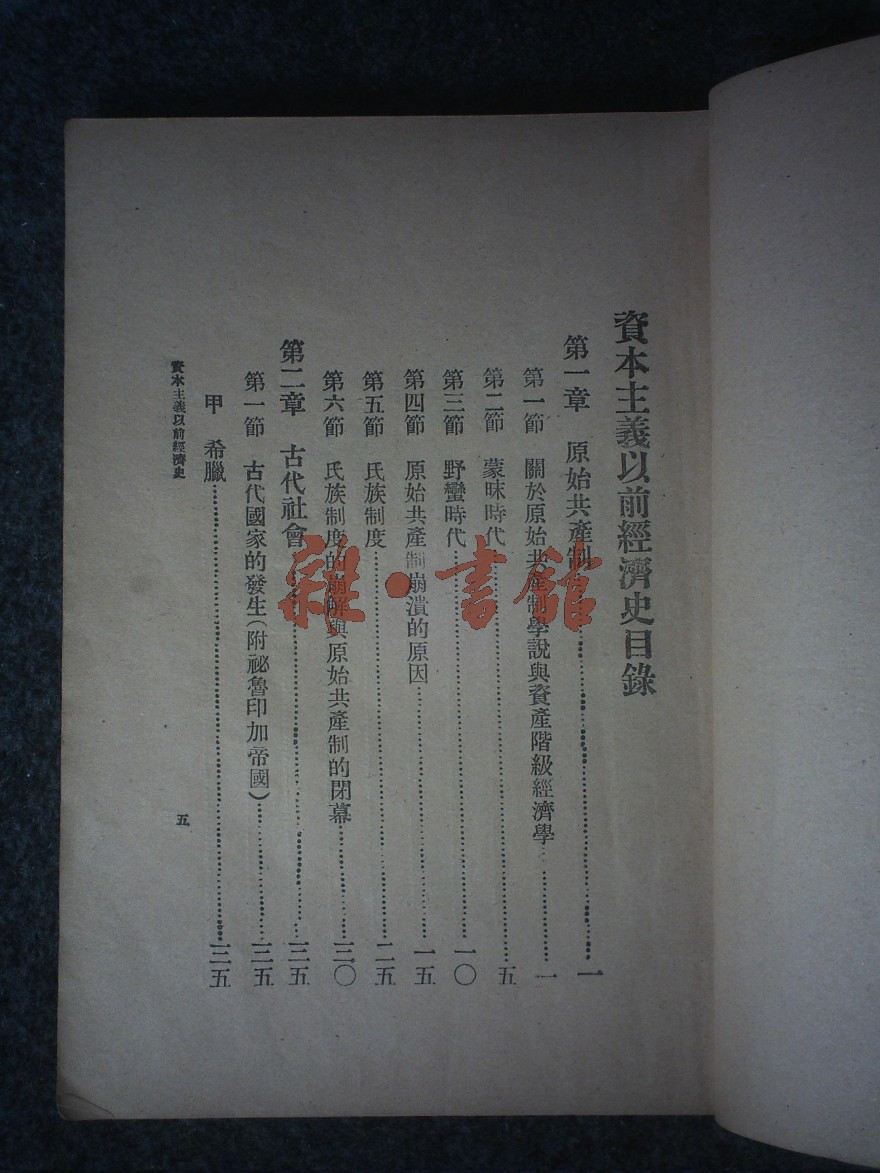 資本主義以前經濟史目錄
第一章 原始共產制……一
第一節 關於原始共產制學說與資產階級經濟學……一
第二節 蒙昧時代……五
第三節 野蠻時代……一〇
第四節 原始共產制崩潰的原因……一五
第五節 氏族制度……二五
第六節 氏族制度的崩解與原始共產制的閉幕……三〇
第二章 古代社會……三五
第一節 古代國家的發生(附祕魯印加帝國)……三五
甲 希臘……三五
資本主義以前經濟史
五
雜·書館